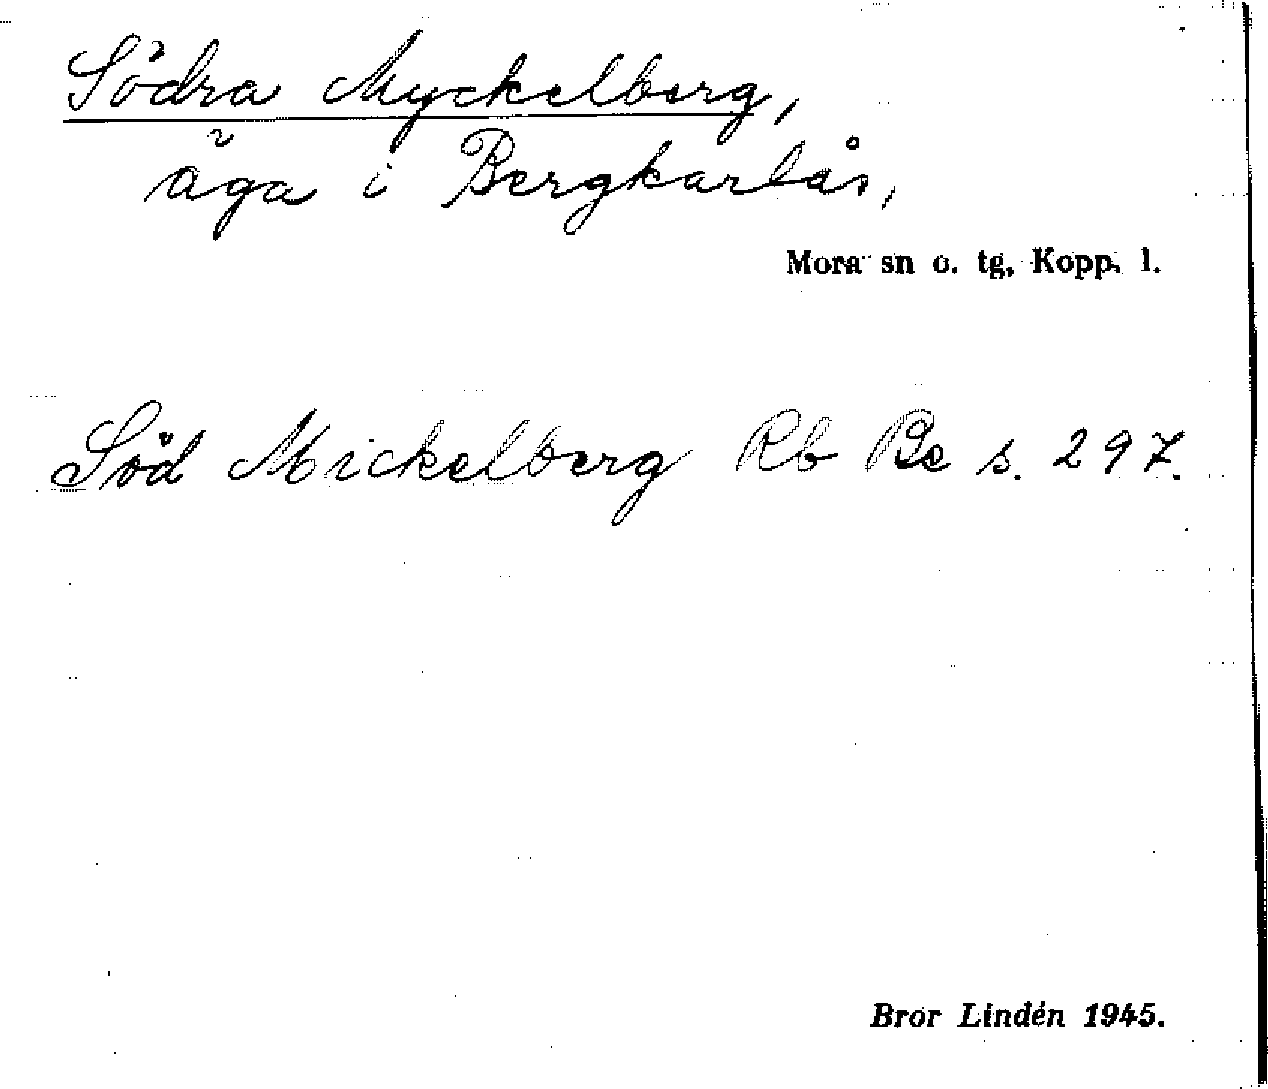 Södra Myckelberg,
äga i Bergkarlås,
Mora sn o. tg, Kopp. l.
Söd Mickelberg Rb Be s. 297.
Bror Lindén 1945.